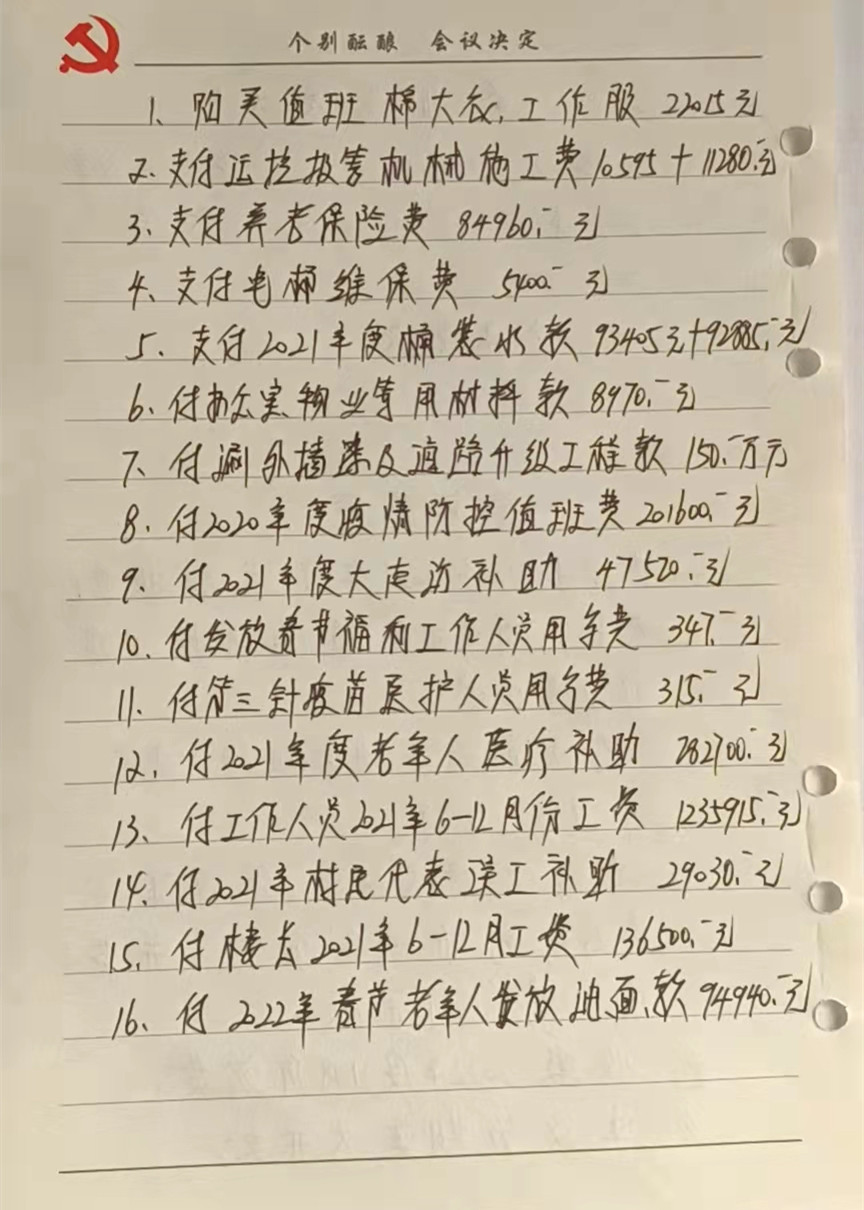 个别酝酿 会议决定
1、购买值班棉大衣,工作服 22015元
2、支付运垃圾等机械施工费10595+11280.-元
3、支付养老保险费 84960.-元
4、支付电梯维保费 5400.-元
5、支付2021年度桶装水款 93405元+92885.-元
6、付办公室物业等用材料款 8970.-元
7、付 外墙 及道路升级工程款 150.-万元
8、付2020年度疫情防控值班费 201600.-元
9、付2021年度大走访补助 47520.-元
10、付发放春节福利工作人员用 费 347.-元
11、付第三针疫苗医护人员用 费 315.-元
12、付2021年度老年人医疗补助 282700.-元
13、付工作人员2021年6-12月份工资 1235915.-元
14、付2021年村民代表误工补助 29030.-元
15、付楼长2021年6-12月工资 136500.-元
16、付2022年春节老年人发放油面款 94940.-元